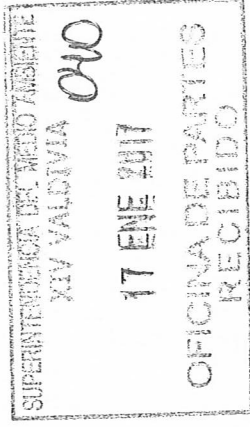 SUPERINTENDENCIA DEL MEDIO AMBIENTE
XIV VALDIVIA
040
17 ENE 2017
OFICINA DE PARTES
RECIBIDO